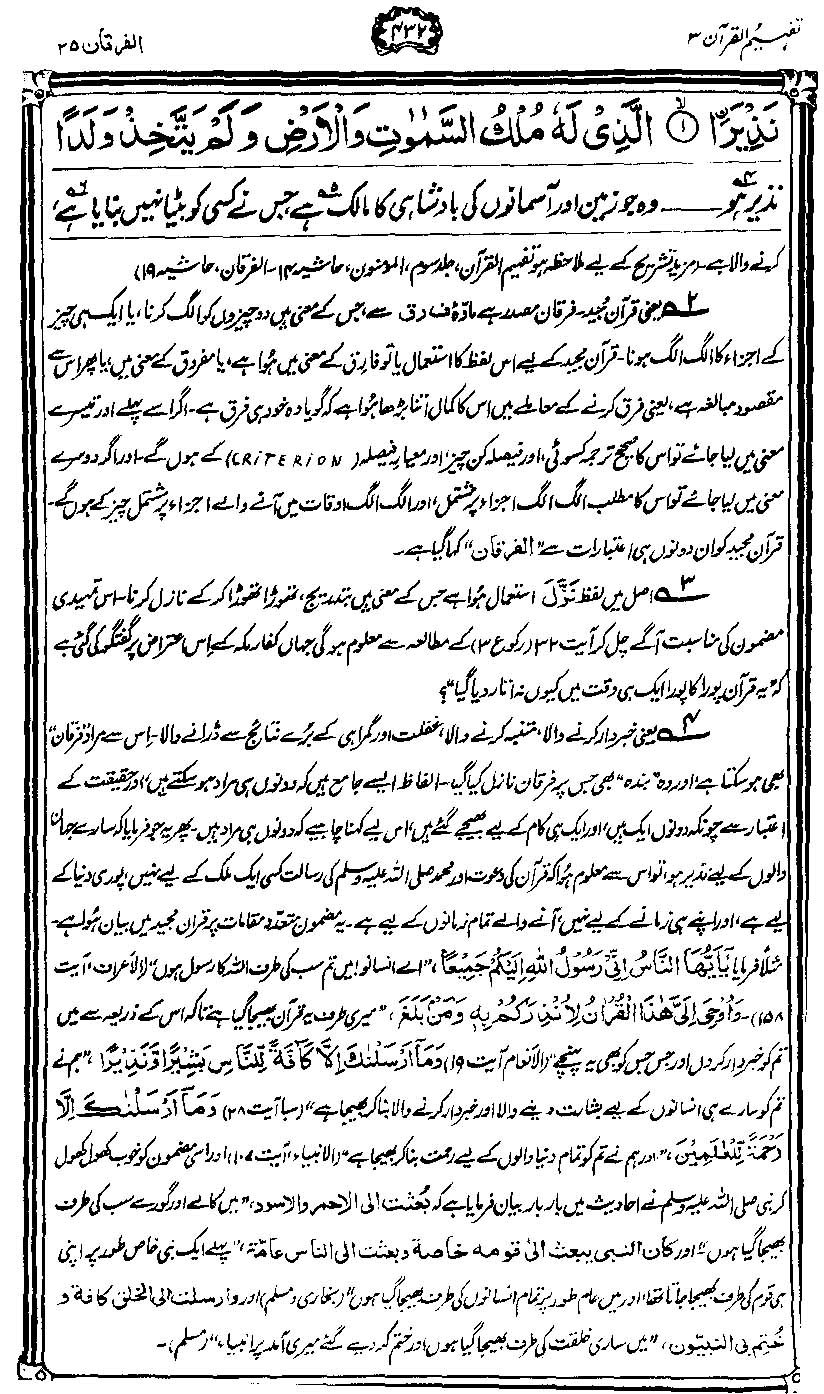 تفہیم القرآن ۳
۴۳۲
الفرقان ۲۵
نَذِيْرَا ۙ﴿۱﴾ الَّذِيْ لَهٗ مُلْكُ السَّمٰوٰتِ وَالْاَرْضِ وَلَمْ يَتَّخِذْ وَلَدًا
نذیر ہو۴؎ ــــــ وہ جو زمین اور آسمانوں کی بادشاہی کا مالک۵؎ ہے جس نے کسی کو بیٹا نہیں بنایا ہے۶؎،
کرنے والا ہے۔ (مزید تشریح کے لیے ملاحظہ ہو تفہیم القرآن، جلد سوم، المومنون، حاشیہ ۱۴۔ الفرقان، حاشیہ ۱۹)
۲؎ یعنی قرآن مجید۔ فرقان مصدر ہے مادّہ ف ر ق سے، جس کے معنی ہیں دو چیزوں کو الگ کرنا، یا ایک ہی چیز
کے اجزاء کا الگ الگ ہونا۔ قرآن مجید کے لیے اس لفظ کا استعمال یا تو فارق کے معنی میں ہوا ہے، یا مفروق کے معنی میں، یا پھر اس سے
مقصود مبالغہ ہے، یعنی فرق کرنے کے معاملے میں اس کا کمال اتنا بڑھا ہوا ہے کہ گویا وہ خود ہی فرق ہے۔ اگر اسے پہلے اور تیسرے
معنی میں لیا جائے تو اس کا صحیح ترجمہ کسوٹی، اور فیصلہ کن چیز، اور معیارِ فیصلہ (CRITERION) کے ہوں گے۔ اور اگر دوسرے
معنی میں لیا جائے تو اس کا مطلب الگ الگ اجزاء پر مشتمل، اور الگ الگ اوقات میں آنے والے اجزاء پر مشتمل چیز کے ہوں گے۔
قرآن مجید کو ان دونوں ہی اعتبارات سے ”الفرقان“ کہا گیا ہے۔
۳؎ اصل میں لفظ نَزَّلَ استعمال ہوا ہے جس کے معنی ہیں بتدریج، تھوڑا تھوڑا کر کے نازل کرنا۔ اس تمہیدی
مضمون کی مناسبت آگے چل کر آیت ۳۲ (رکوع ۳) کے مطالعہ سے معلوم ہوگی جہاں کفار مکہ کے اِس اعتراض پر گفتگو کی گئی ہے
کہ ”یہ قرآن پورا کا پورا ایک ہی وقت میں کیوں نہ اتار دیا گیا“؟
۴؎ یعنی خبردار کرنے والا، متنبہ کرنے والا، غفلت اور گمراہی کے بُرے نتائج سے ڈرانے والا۔ اِس سے مراد ”فرقان“
بھی ہو سکتا ہے، اور وہ ”بندہ“ بھی جس پر فرقان نازل کیا گیا۔ الفاظ ایسے جامع ہیں کہ دونوں ہی مراد ہو سکتے ہیں، اور حقیقت کے
اعتبار سے چونکہ دونوں ایک ہیں، اور ایک ہی کام کے لیے بھیجے گئے ہیں، اس لیے کہنا چاہیے کہ دونوں ہی مراد ہیں۔ پھر یہ جو فرمایا کہ سارے جہان
والوں کے لیے نذیر ہو، تو اس سے معلوم ہوا کہ قرآن کی دعوت اور محمد صلی اللہ علیہ وسلم کی رسالت کسی ایک ملک کے لیے نہیں، پوری دنیا کے
لیے ہے، اور اپنے ہی زمانے کے لیے نہیں، آنے والے تمام زمانوں کے لیے ہے۔ یہ مضمون متعدد مقامات پر قرآن مجید میں بیان ہُوا ہے۔
مثلاً فرمایا یٰٓاَیُّهَا النَّاسُ اِنِّیْ رَسُوْلُ اللّٰهِ اِلَیْكُمْ جَمِیْعًا، ”اے انسانو! میں تم سب کی طرف اللہ کا رسول ہوں“ (الاعراف، آیت
۱۵۸)۔ وَاُوْحِیَ اِلَیَّ هٰذَا الْقُرْاٰنُ لِاُنْذِرَكُمْ بِهٖ وَمَنْۢ بَلَغَ، ”میری طرف یہ قرآن بھیجا گیا ہے تاکہ اس کے ذریعہ سے میں
تم کو خبردار کردوں اور جس جس کو بھی یہ پہنچے“ (الانعام آیت ۱۹) وَمَآ اَرْسَلْنٰكَ اِلَّا كَآفَّةً لِّلنَّاسِ بَشِیْرًا وَّنَذِیْرًا، ”ہم نے
تم کو سارے ہی انسانوں کے لیے بشارت دینے والا اور خبردار کرنے والا بنا کر بھیجا ہے“ (سبا آیت ۲۸) وَمَآ اَرْسَلْنٰكَ اِلَّا
رَحْمَةً لِّلْعٰلَمِیْنَ، ”اور ہم نے تم کو تمام دنیا والوں کے لیے رحمت بنا کر بھیجا ہے“ (الانبیاء، آیت ۱۰۷) اور اسی مضمون کو خوب کھول کھول
کر نبی صلی اللہ علیہ وسلم نے احادیث میں بار بار بیان فرمایا ہے کہ بُعثت الی الاحمر والاسود، ”میں کالے اور گورے سب کی طرف
بھیجا گیا ہوں“ اور کان النبی یبعث الیٰ قومہ خاصۃ وبعثت الی الناس عامّۃ، ”پہلے ایک نبی خاص طور پر اپنی
ہی قوم کی طرف بھیجا جاتا تھا، اور میں عام طور پر تمام انسانوں کی طرف بھیجا گیا ہوں“ (بخاری و مسلم) اور وارسلت الی الخلق کافۃ و
خُتِم بی النبیّون، ”میں ساری خلقت کی طرف بھیجا گیا ہوں اور ختم کر دیے گئے میری آمد پر انبیاء“ (مسلم)۔